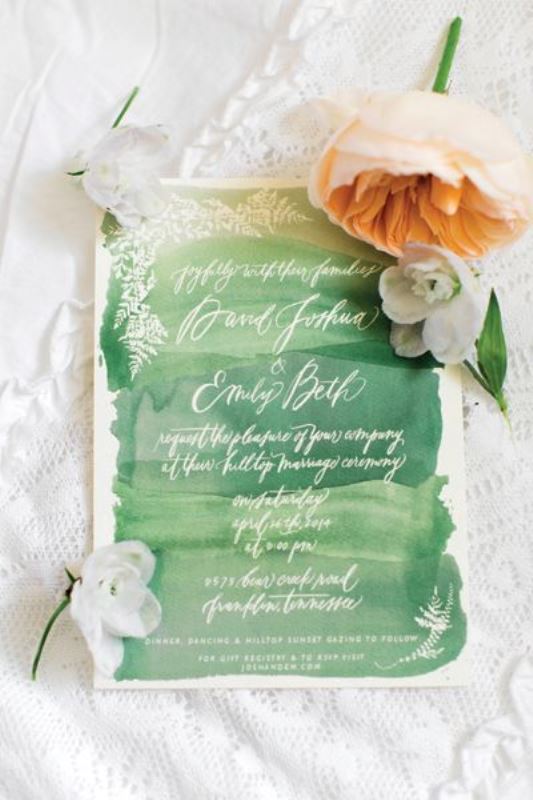 joyfully with their families
David Joshua
&
Emily Beth
request the pleasure of your company
at their hilltop marriage ceremony
on saturday
april 26th, 2014
at :00 pm
bear creek road
franklin, tennessee
DINNER, DANCING & HILLTOP SUNSET GAZING TO FOLLOW
FOR GIFT REGISTRY & TO RSVP VISIT
JOSHANDEM.COM